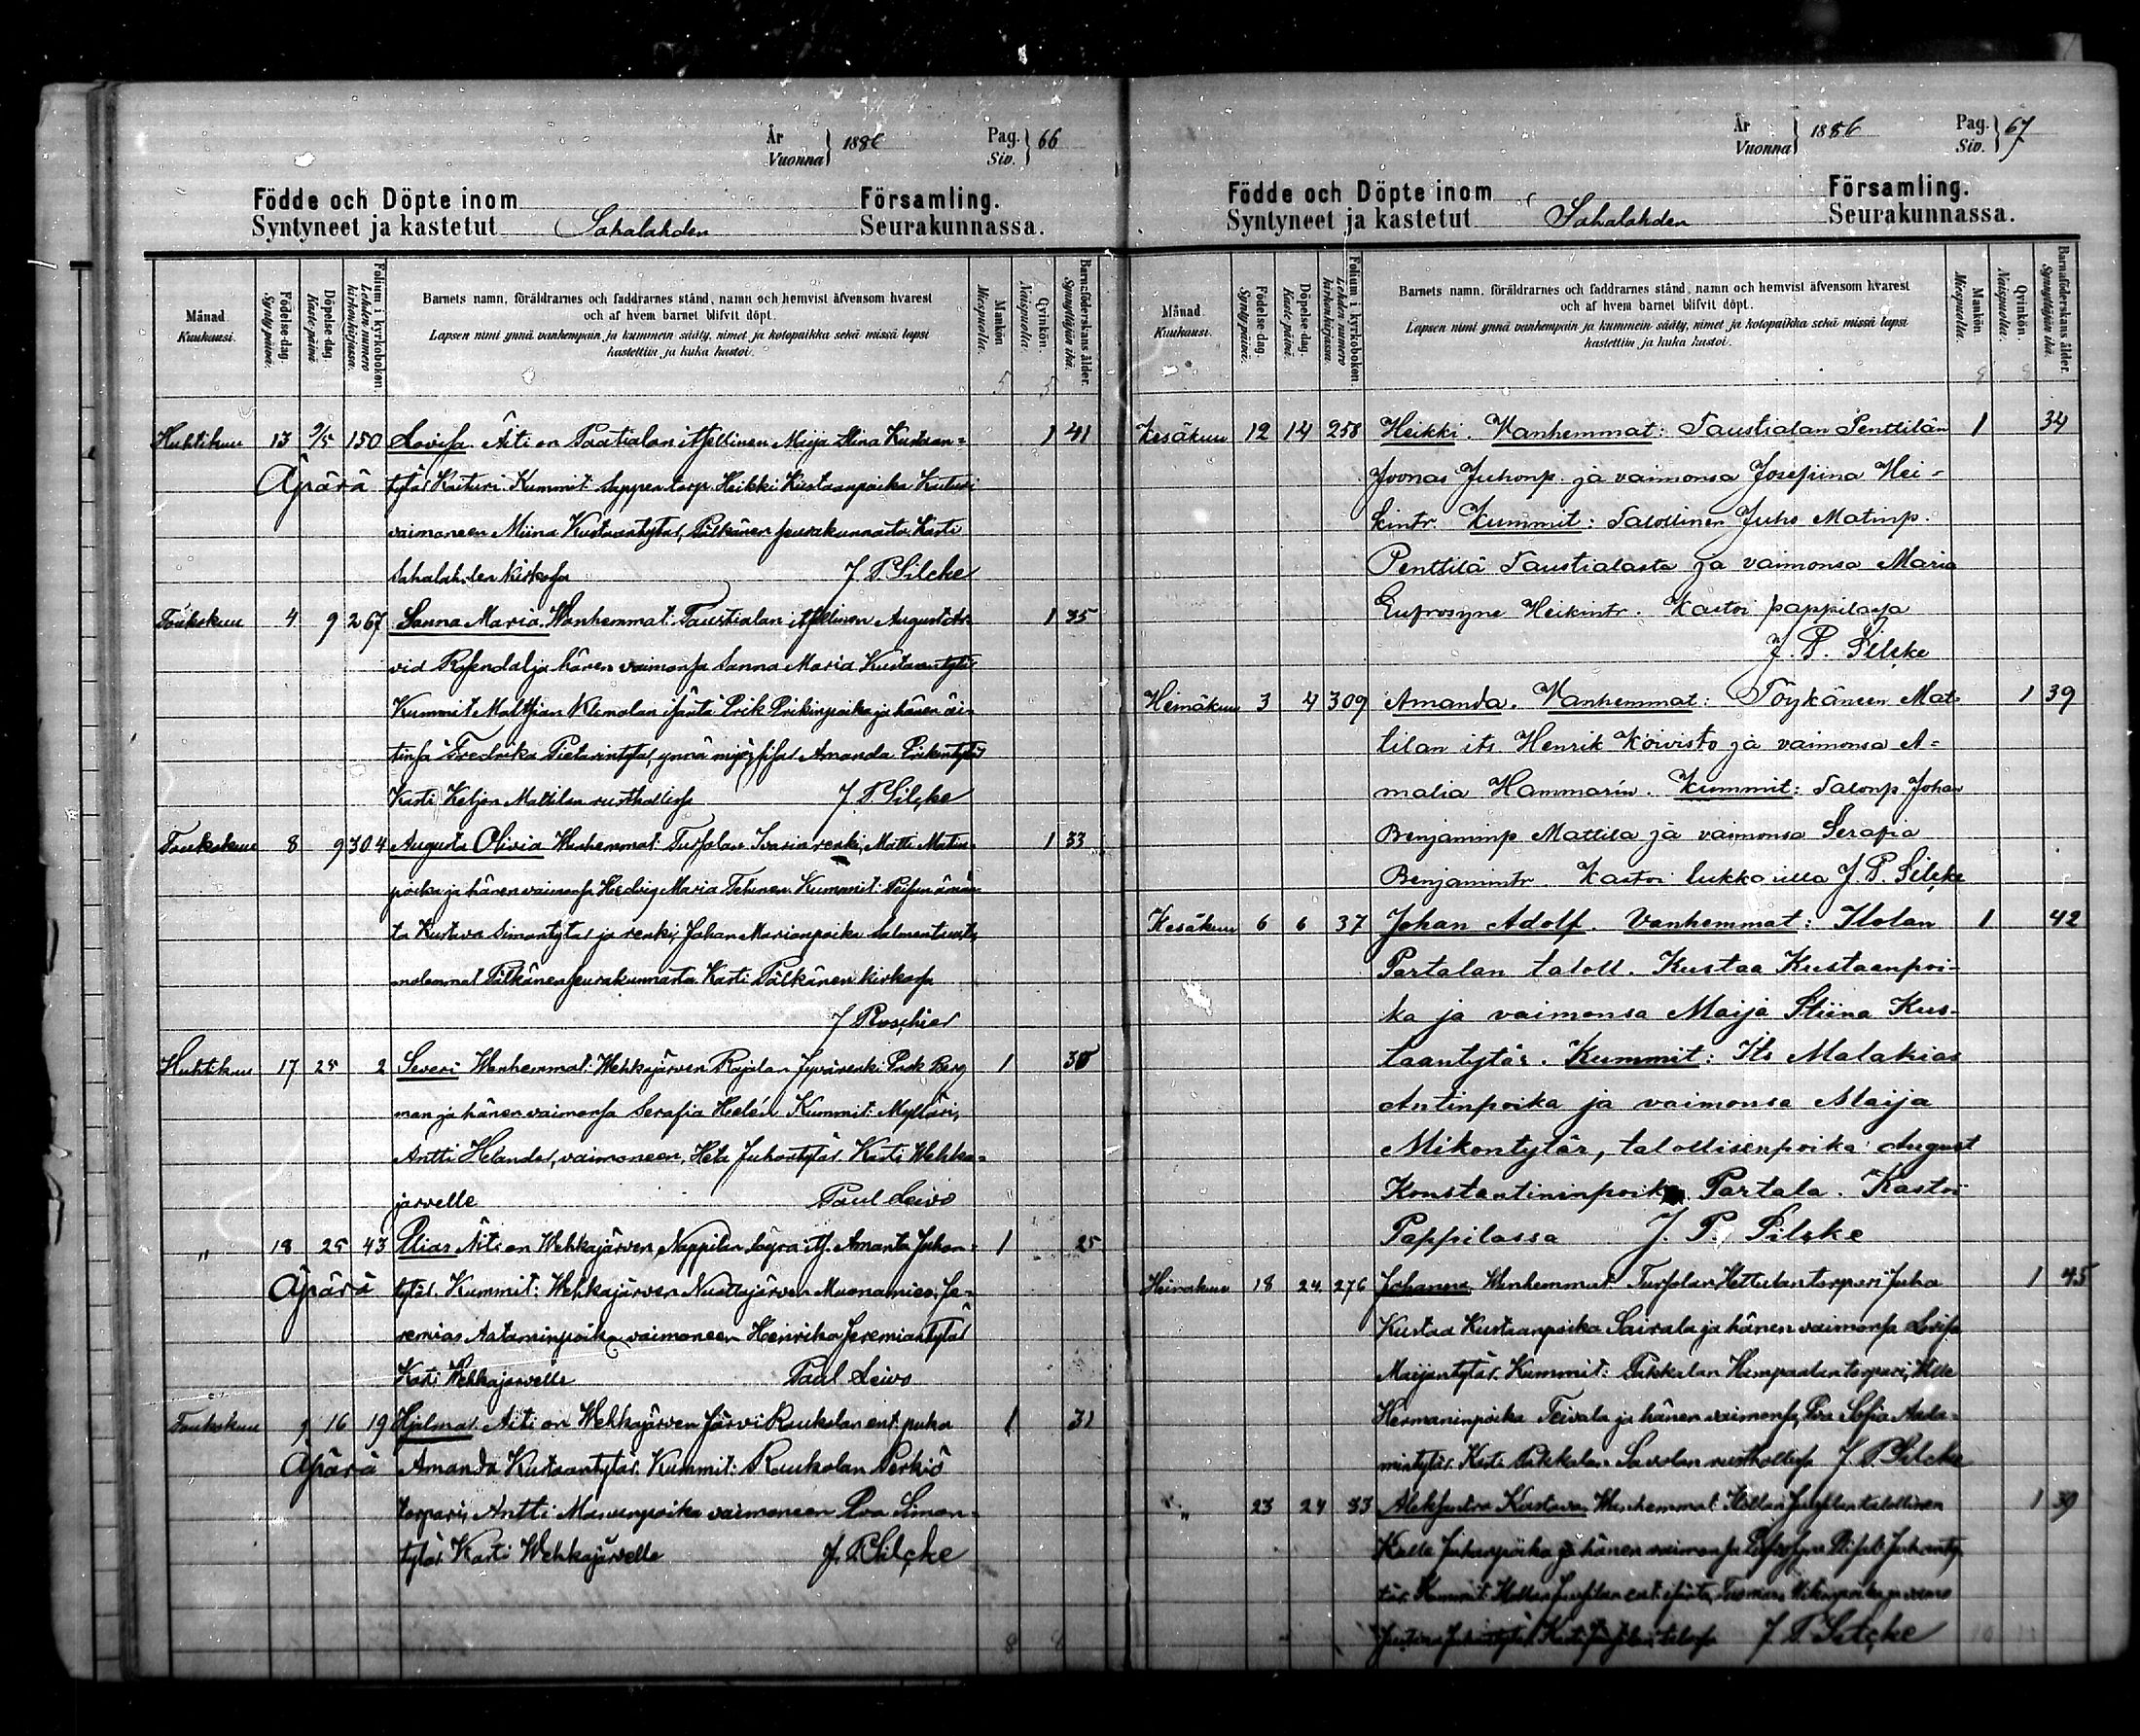 År
Vuonna } 1886 Pag.
Siv. } 66
Födde och Döpte inom Församling.
Syntyneet ja kastetut Sahalahden Seurakunnassa.
Månad
Kuukausi.
Födelse-dag.
Syntypäivä.
Döpelse-dag
Kaste-päivä
Folium i kyrkoboken.
Lehden numero
kirkonkirjassa.
Barnets namn, föräldrarnes och faddrarnes stånd, namn och hemvist äfvensom hvarest
och af hvem barnet blifvit döpt.
Lapsen nimi ynnä vanhempain ja kummein sääty, nimet ja kotopaikka sekä missä lapsi
kastettiin ja kuka kastoi.
Mankön
Miespuolta.
Qvinkön.
Naispuolta.
Barnaföderskans ålder.
Synnyttäjän ikä.
5 5
Huhtikuu 13 9/5 150 Lovisa. Äiti on Taatialan itsellinen Maija Stina Kustaan- 1 41
Äpärä tytär Kaituri. Kummit: torp. Heikki Kustaanpoika Kaituri
vaimoneen Miina Kustaantytär, Pälkäneen seurakunnasta. Kasti
Sahalahden kirkossa J. P. Silcke
Toukokuu 4 9 267 Sanna Maria. Wanhemmat: Taustialan itsellinen August Ar- 1 35
vid Rosendal ja hänen vaimonsa Sanna Maria Kustaantytär
Kummit: Mattilan isäntä Erik Erikinpoika ja hänen äi-
tinsä Fredrika Pietarintytär, ynnä sisar Amanda Erikintytär
Kasti Keljon Mattilan rusthollissa J. P. Silcke
Toukokuu 8 9 304 Augusta Olivia Wanhemmat: Tursolan Iivarin renki, Matti Matin- 1 33
poika ja hänen vaimonsa Hedvig Maria Kummit:
ta Kustava Simontytär ja renki, Johan Marianpoika
molemmat Pälkäneen seurakunnasta. Kasti Pälkäneen kirkossa
J Roschier
Huhtikuu 17 25 2 Severi Wanhemmat: Wehkajärven Rajalan renki Erik Berg 1 30
man ja hänen vaimonsa Serafia Helén Kummit: Mylläri,
Antti Helander, vaimoneen, Heta Juhontytär. Kasti Wehka-
järvelle Paul Leivo
" 18 25 43 Elias Äiti on Wehkajärven Nappilan its. Amanta Juhon- 1 25
Äpärä tytär. Kummit: Wehkajärven Muonamies, Je-
remias Aataminpoika vaimoneen Henrika Jeremiantytär
Kasti Wehkajärvelle Paul Leivo
Toukokuu 9 16 19 Hjalmar. Äiti on Wehkajärven Järvi Ruukolan ent. piika 1 31
Äpärä Amanda Kustaantytär. Kummit: Ruukolan Perkiö
torpari, Antti vaimoneen Eva Simon-
tytär. Kasti Wehkajärvelle J. P. Silcke
8 8
År
Vuonna } 1886 Pag.
Siv. } 67
Födde och Döpte inom Församling.
Syntyneet ja kastetut Sahalahden Seurakunnassa.
Månad
Kuukausi.
Födelse-dag.
Syntypäivä.
Döpelse-dag.
Kaste-päivä.
Folium i kyrkoboken.
Lehden numero
kirkonkirjassa.
Barnets namn, föräldrarnes och faddrarnes stånd, namn och hemvist äfvensom hvarest
och af hvem barnet blifvit döpt.
Lapsen nimi ynnä vanhempain ja kummein sääty, nimet ja kotopaikka sekä missä lapsi
kastettiin ja kuka kastoi.
Mankön.
Miespuolta.
Qvinkön.
Naispuolta.
Barnaföderskans ålder.
Synnyttäjän ikä.
8 8
Kesäkuu 12 14 258 Heikki. Wanhemmat: Taustialan Penttilän 1 34
Joonas Juhonp. ja vaimonsa Josefiina Hei-
kintr. Kummit: Talollinen Juho Matinp.
Penttilä Taustialasta ja vaimonsa Maria
Eufrosyne Heikintr. Kastoi pappilassa
J. P. Silcke
Heinäkuu 3 4 309 Amanda. Wanhemmat: Töykäneen Mat- 1 39
tilan its. Henrik Koivisto ja vaimonsa A-
malia Hammarin. Kummit: Talonp. Johan
Benjaminp Mattila ja vaimonsa Serafia
Benjamintr. Kastoi lukkarilla J. P. Silcke
Kesäkuu 6 6 37 Johan Adolf. Vanhemmat: Ilolan 1 42
Partalan taloll. Kustaa Kustaanpoi-
ka ja vaimonsa Maija Stiina Kus-
taantytär. Kummit: Its Malakias
Antinpoika ja vaimonsa Maija
Mikontytär, talollisenpoika August
Konstantininpoika Partala. Kastoi
Pappilassa J. P. Silcke
Heinäkuu 18 24 276 Johanna. Wanhemmat: Tursolan Hettulan torpari Juho 1 45
Kustaa Kustaanpoika Sairala ja hänen vaimonsa Lovisa
Maijantytär. Kummit: Pakkalan Hempaalan torpari, Kalle
Hermaninpoika Teivala ja hänen vaimonsa, Eva Sofia Aada-
mintytär. Kasti Pakkalan Savolan rusthollissa J. P. Silcke
" 23 24 33 Aleksandra Kustava. Wanhemmat: talollinen 1 39
Kalle Juhanpoika ja hänen vaimonsa Juhanty-
tär. Kummit: ent. isäntä, Tuomas ja vaimo
Justina Juhontytär. Kasti talossa J P Silcke